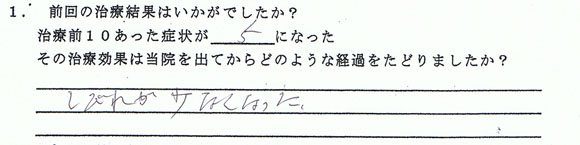 1. 前回の治療結果はいかがでしたか？
治療前１０あった症状が 5 になった
その治療効果は当院を出てからどのような経過をたどりましたか？
しびれが少なくなった、